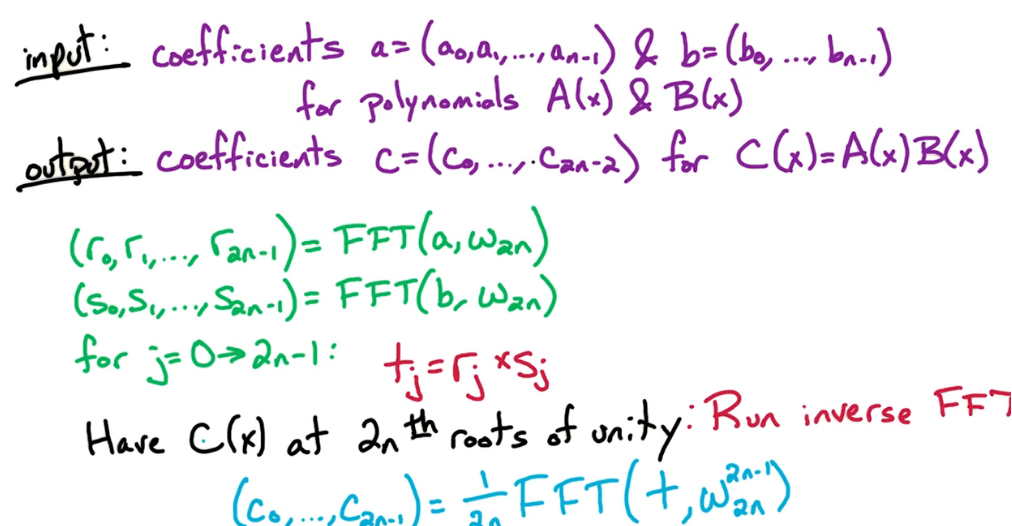 input: coefficients a=(a₀,a₁,...,aₙ₋₁) & b=(b₀, ..., bₙ₋₁)
for polynomials A(x) & B(x)
output: coefficients c=(c₀,...,c₂ₙ₋₂) for C(x)=A(x)B(x)
(r₀,r₁,...,r₂ₙ₋₁)= FFT(a,ω₂ₙ)
(s₀,s₁,...,s₂ₙ₋₁)= FFT(b,ω₂ₙ)
for j=0→2n-1: tⱼ=rⱼ×sⱼ
Have C(x) at 2nᵗʰ roots of unity: Run inverse FFT
(c₀,...,c₂ₙ₋₁)= 1/2n FFT(t,ω₂ₙ²ⁿ⁻¹)